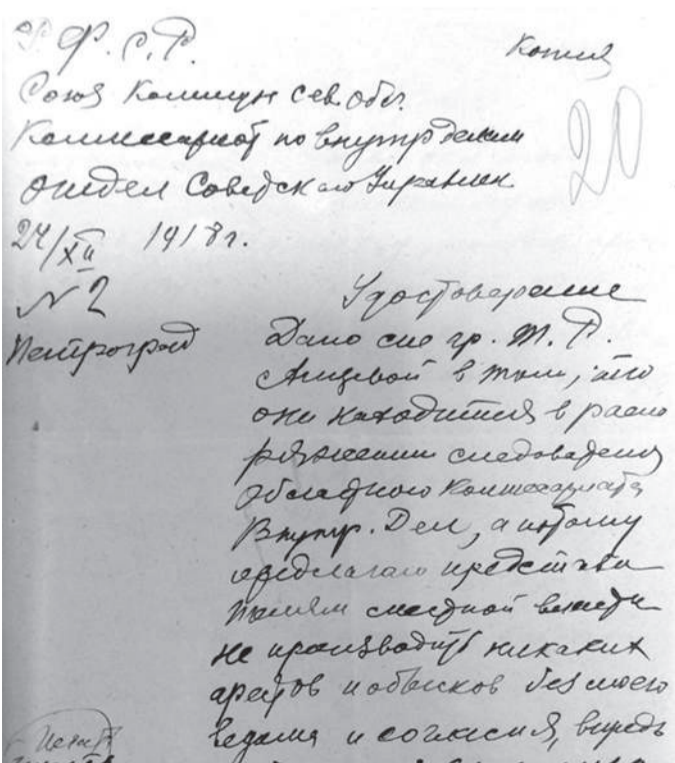 Р. Ф. С. Р.
Копия
Союз Коммун Сев. обл.
20
Комиссариат по внутр делам
отдел Советского Управлен
24/XII 1918 г.
N 2
Удостоверение
Петроград
Дано сие гр. М. Р.
в том, что
она находится в распо
ряжении следователя
областного Комиссариата
Внутр. Дел, а потому
предлагаю представи
телям местной власти
не производить никаких
арестов и обысков без моего
ведома и согласия, впредь
Печать